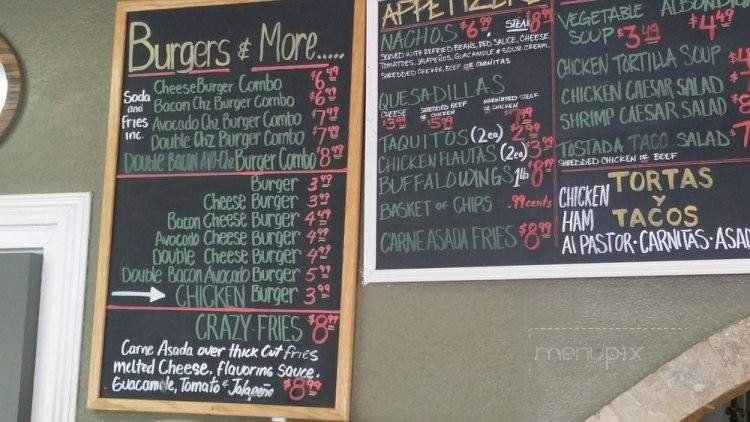 Burgers & More.....
Soda and Fries inc.
CheeseBurger Combo $6.49
Bacon Chz Burger Combo $6.99
Avocado Chz Burger Combo $7.49
Double Chz Burger Combo $7.49
Double Bacon AVO-Chz Burger Combo $8.49
Burger 3.49
Cheese Burger 3.99
Bacon Cheese Burger 4.49
Avocado Cheese Burger 4.99
Double Cheese Burger 4.99
Double Bacon Avocado Burger 5.99
CHICKEN Burger 3.99
CRAZY FRIES $8.99
Carne Asada over thick Cut fries
melted Cheese, flavoring Sauce,
Guacamole, Tomato & Jalapeño $8.99
APPETIZERS
NACHOS $6.99 STEAK 8.99
SERVED WITH REFRIED BEANS, RED SAUCE, CHEESE,
TOMATOES, JALAPEÑOS, GUACAMOLE & SOUR CREAM.
SHREDDED CHICKEN, BEEF OR CARNITAS
QUESADILLAS
CHEESE $3.99 SHREDDED BEEF OR CHICKEN $5.99 MARINATED STEAK OR CHICKEN
TAQUITOS (2ea) $2.99
CHICKEN FLAUTAS (2ea) $3.99
BUFFALO WINGS 1lb $8.99
BASKET OF CHIPS .99 cents
CARNE ASADA FRIES $8.99
VEGETABLE SOUP $3.49
$4.49
CHICKEN TORTILLA SOUP $4
CHICKEN CAESAR SALAD
SHRIMP CAESAR SALAD
TOSTADA TACO SALAD $7
SHREDDED CHICKEN OR BEEF
TORTAS
Y
TACOS
CHICKEN
HAM
Al PASTOR · CARNITAS ·
menupix